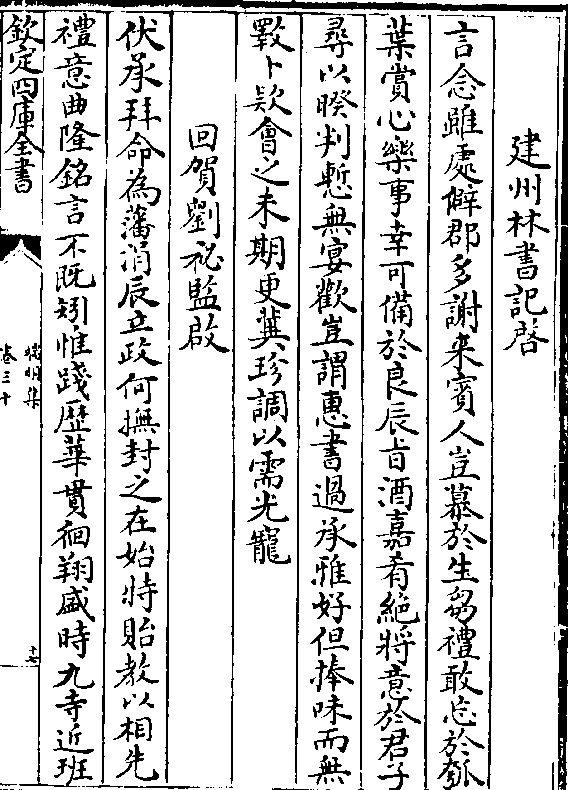 建州林書記啓
言念雖處僻郡多謝来賓人豈慕於生芻禮敢忘於瓠
葉賞心樂事幸可備於良辰旨酒嘉肴絶將意於君子
尋以暌判慙無宴歡豈謂惠書過承雅好但捧味而無
斁卜欵會之未期更冀珍調以需光寵
回賀劉祕監啟
伏承拜命為藩涓辰立政何撫封之在始特貽教以相先
禮意曲隆銘言不既矧惟踐歴華貫徊翔盛時九寺近班
欽定四庫全書
卷三十